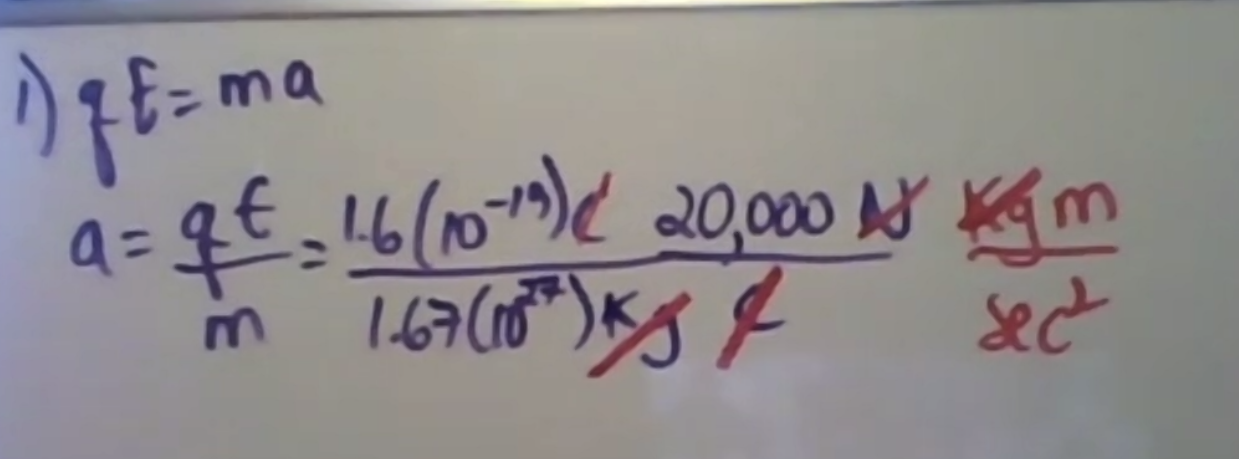 1) qE = ma
a = qE/m = 1.6(10⁻¹⁹)C 20,000 N / 1.67(10⁻²⁷)Kg C Kg m / sec²